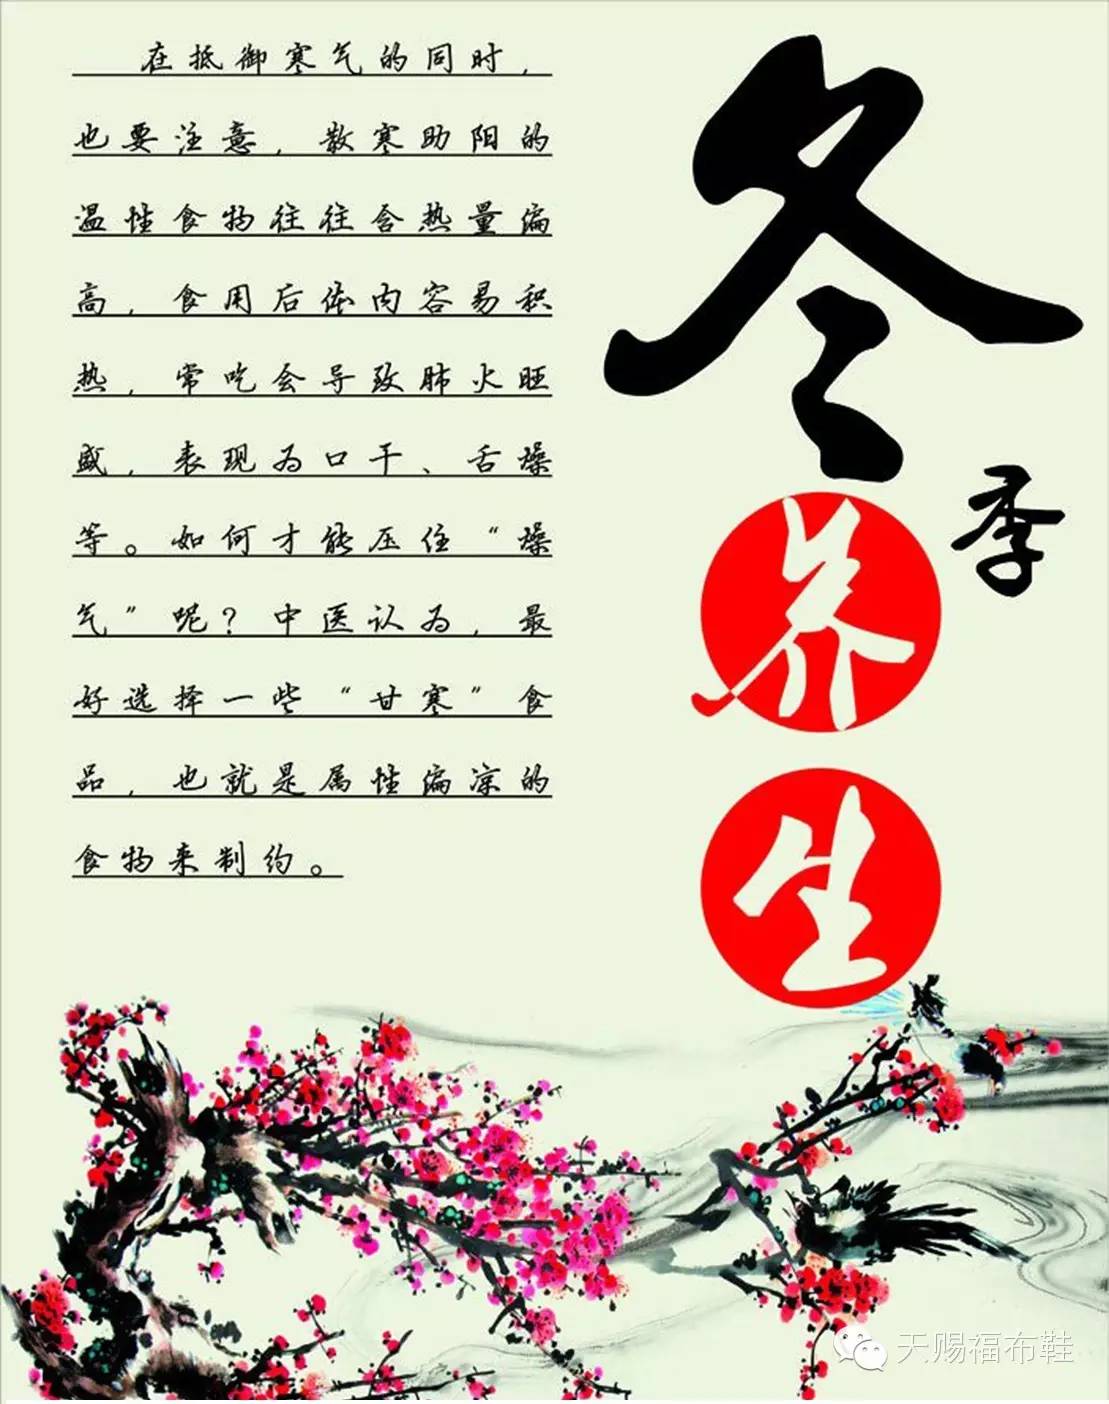 在抵御寒气的同时，
也要注意，散寒助阳的
温性食物往往含热量偏
高，食用后体内容易积
热，常吃会导致肺火旺
盛，表现为口干、舌燥
等。如何才能压住“燥
气”呢？中医认为，最
好选择一些“甘寒”食
品，也就是属性偏凉的
食物来制约。
冬
季
养
生
天赐福布鞋